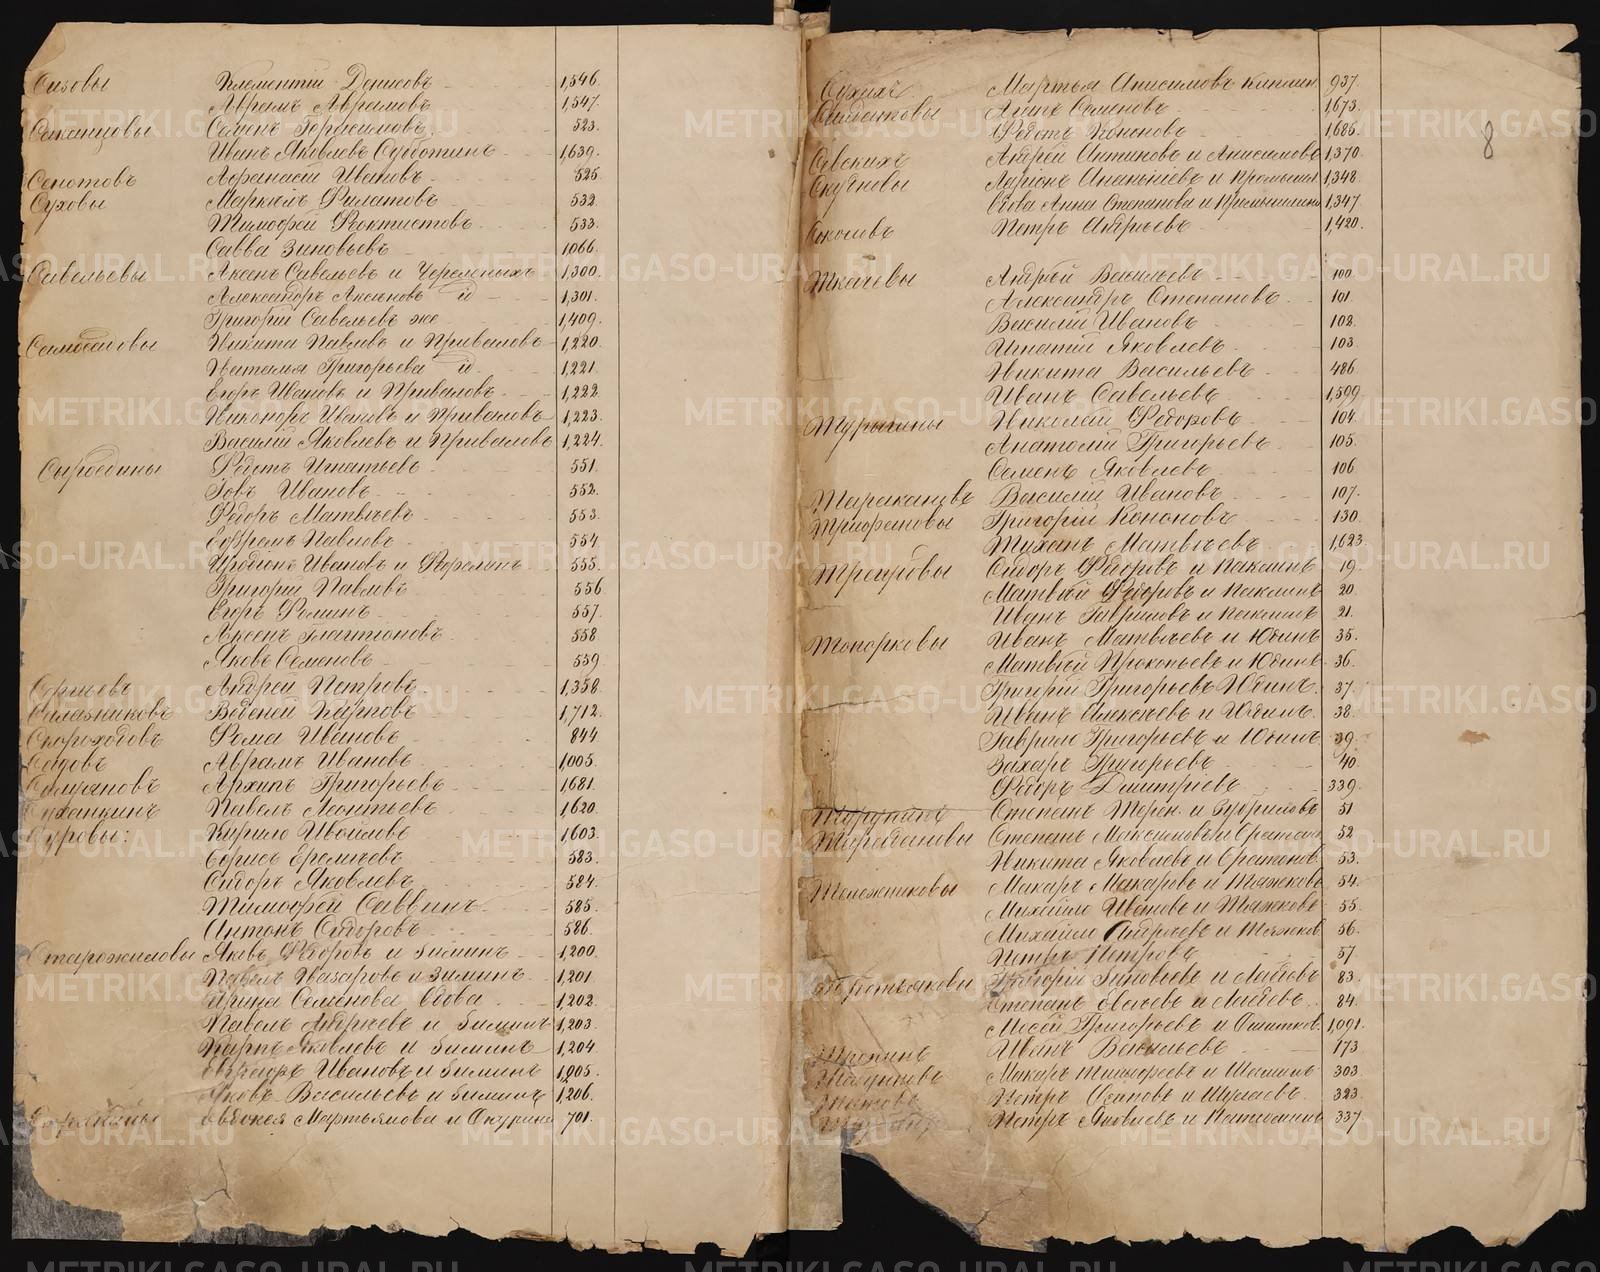 Сизовы Климентiй Денисовъ 1,546.
Аврамъ Аврамовъ 1,547.
Саканцовы Семенъ Герасимовъ 523.
Иванъ Яковлевъ Субботинъ 1,639.
Сапотовъ Афанасiй Ивановъ 525.
Суховы Маркелъ Филатовъ 532.
Тимофей Феоктистовъ 533.
Савва Зиновьевъ 1066.
Савельевы Аксенъ Савельевъ и Черемныхъ 1,300.
Александръ Аксеновъ и 1,301.
Григорiй Савельевъ же 1,409.
Самойловы Никита Павловъ и Приваловъ 1,220.
Наталья Григорьева и 1,221.
Егоръ Ивановъ и Приваловъ 1,222.
Никаноръ Ивановъ и Приваловъ 1,223.
Василiй Яковлевъ и Приваловъ 1,224.
Сыроедины Федотъ Игнатьевъ 551.
Iовъ Ивановъ 552.
Федоръ Матвѣевъ 553.
Ефремъ Павловъ 554
Иродiонъ Ивановъ и 555.
Григорiй Павловъ 556
Егоръ Фоминъ 557.
Аксенъ Галактiоновъ 558.
Яковъ Семеновъ 559.
Сергѣевъ Андрей Петровъ 1,358.
Салазниковъ Веденей Карповъ 1,712.
Скороходовъ Фома Ивановъ 844
Садовъ Аврамъ Ивановъ 1005.
Архипъ Григорьевъ 1,681.
Суханкинъ Павелъ Леонтьевъ 1,620.
Суровы: Кирило Ивойловъ 1,603.
Борисъ Еремѣевъ 583.
Сидоръ Яковлевъ 584.
Тимофей Саввинъ 585.
Антонъ Сидоровъ 586.
Старожиловы Яковъ Федоровъ и Зиминъ 1,200.
Павелъ Назаровъ и Зиминъ 1,201
Ирина Семенова вдова 1,202.
Павелъ Андреевъ и Зиминъ 1,203.
Карпъ Яковлевъ и Зиминъ 1,204
Ивановъ и Зиминъ 1,205.
Яковъ Васильевъ и Зиминъ 1,206.
Евдокея Мартьянова и Окурина 701.
Сухихъ Мартьянъ Анисимовъ 937.
Якимъ Семеновъ 1,673.
Федотъ Кононовъ 1,686.
Севскихъ Андрей Антиповъ и Анисимовъ 1,370.
Скутновы Ларiонъ Ананьинъ и 1,348.
вдова Анна Степанова и 1,347.
Соколовъ Петръ Андреевъ 1,420.
Ткачевы Андрей Васильевъ 100.
Александръ Степановъ 101.
Василiй Ивановъ 102.
Игнатiй Яковлевъ 103.
Никита Васильевъ 486.
Иванъ Савельевъ 1,599.
Турыгины Николай Федоровъ 104.
Анатолiй Григорьевъ 105.
Семенъ Яковлевъ 106
Тараканова Василiй Ивановъ 107.
Трифановы Григорiй Кононовъ 130.
Матвѣевъ 1,623.
Трегубовы Сидоръ Федоровъ и Паклинъ 19.
Матвѣй Федоровъ и Паклинъ 20.
Иванъ Гавриловъ и Паклинъ 21.
Топорковы Иванъ Матвѣевъ и Юдинъ 35.
Матвѣй Прокопьевъ и Юдинъ 36.
Григорiй Григорьевъ Юдинъ 37.
Иванъ Алексѣевъ и Юдинъ. 38.
Гаврило Григорьевъ и Юдинъ 39.
Захаръ Григорьевъ 40.
Федоръ Дмитрiевъ 339.
Степанъ Терен. и 51
Степанъ Максимовъ и 52.
Никита Яковлевъ и 53.
Тележниковы Макаръ Макаровъ и Тяжковъ 54.
Михайло Ивановъ и Тяжковъ 55.
Михайло Андреевъ и Тяжков. 56.
Петръ Петровъ 57
Третьяковы Григорiй Зиновьевъ и Лебовъ 83.
Степанъ и 84.
Мосей Григорьевъ и 1,091.
Тюнинъ Иванъ Васильевъ 173
Макаръ Тимофеевъ и Шалинъ 303
Титовъ Петръ Осиповъ и 323
Петръ Яковлевъ и 337
8
METRIKI.GASO-URAL.RU